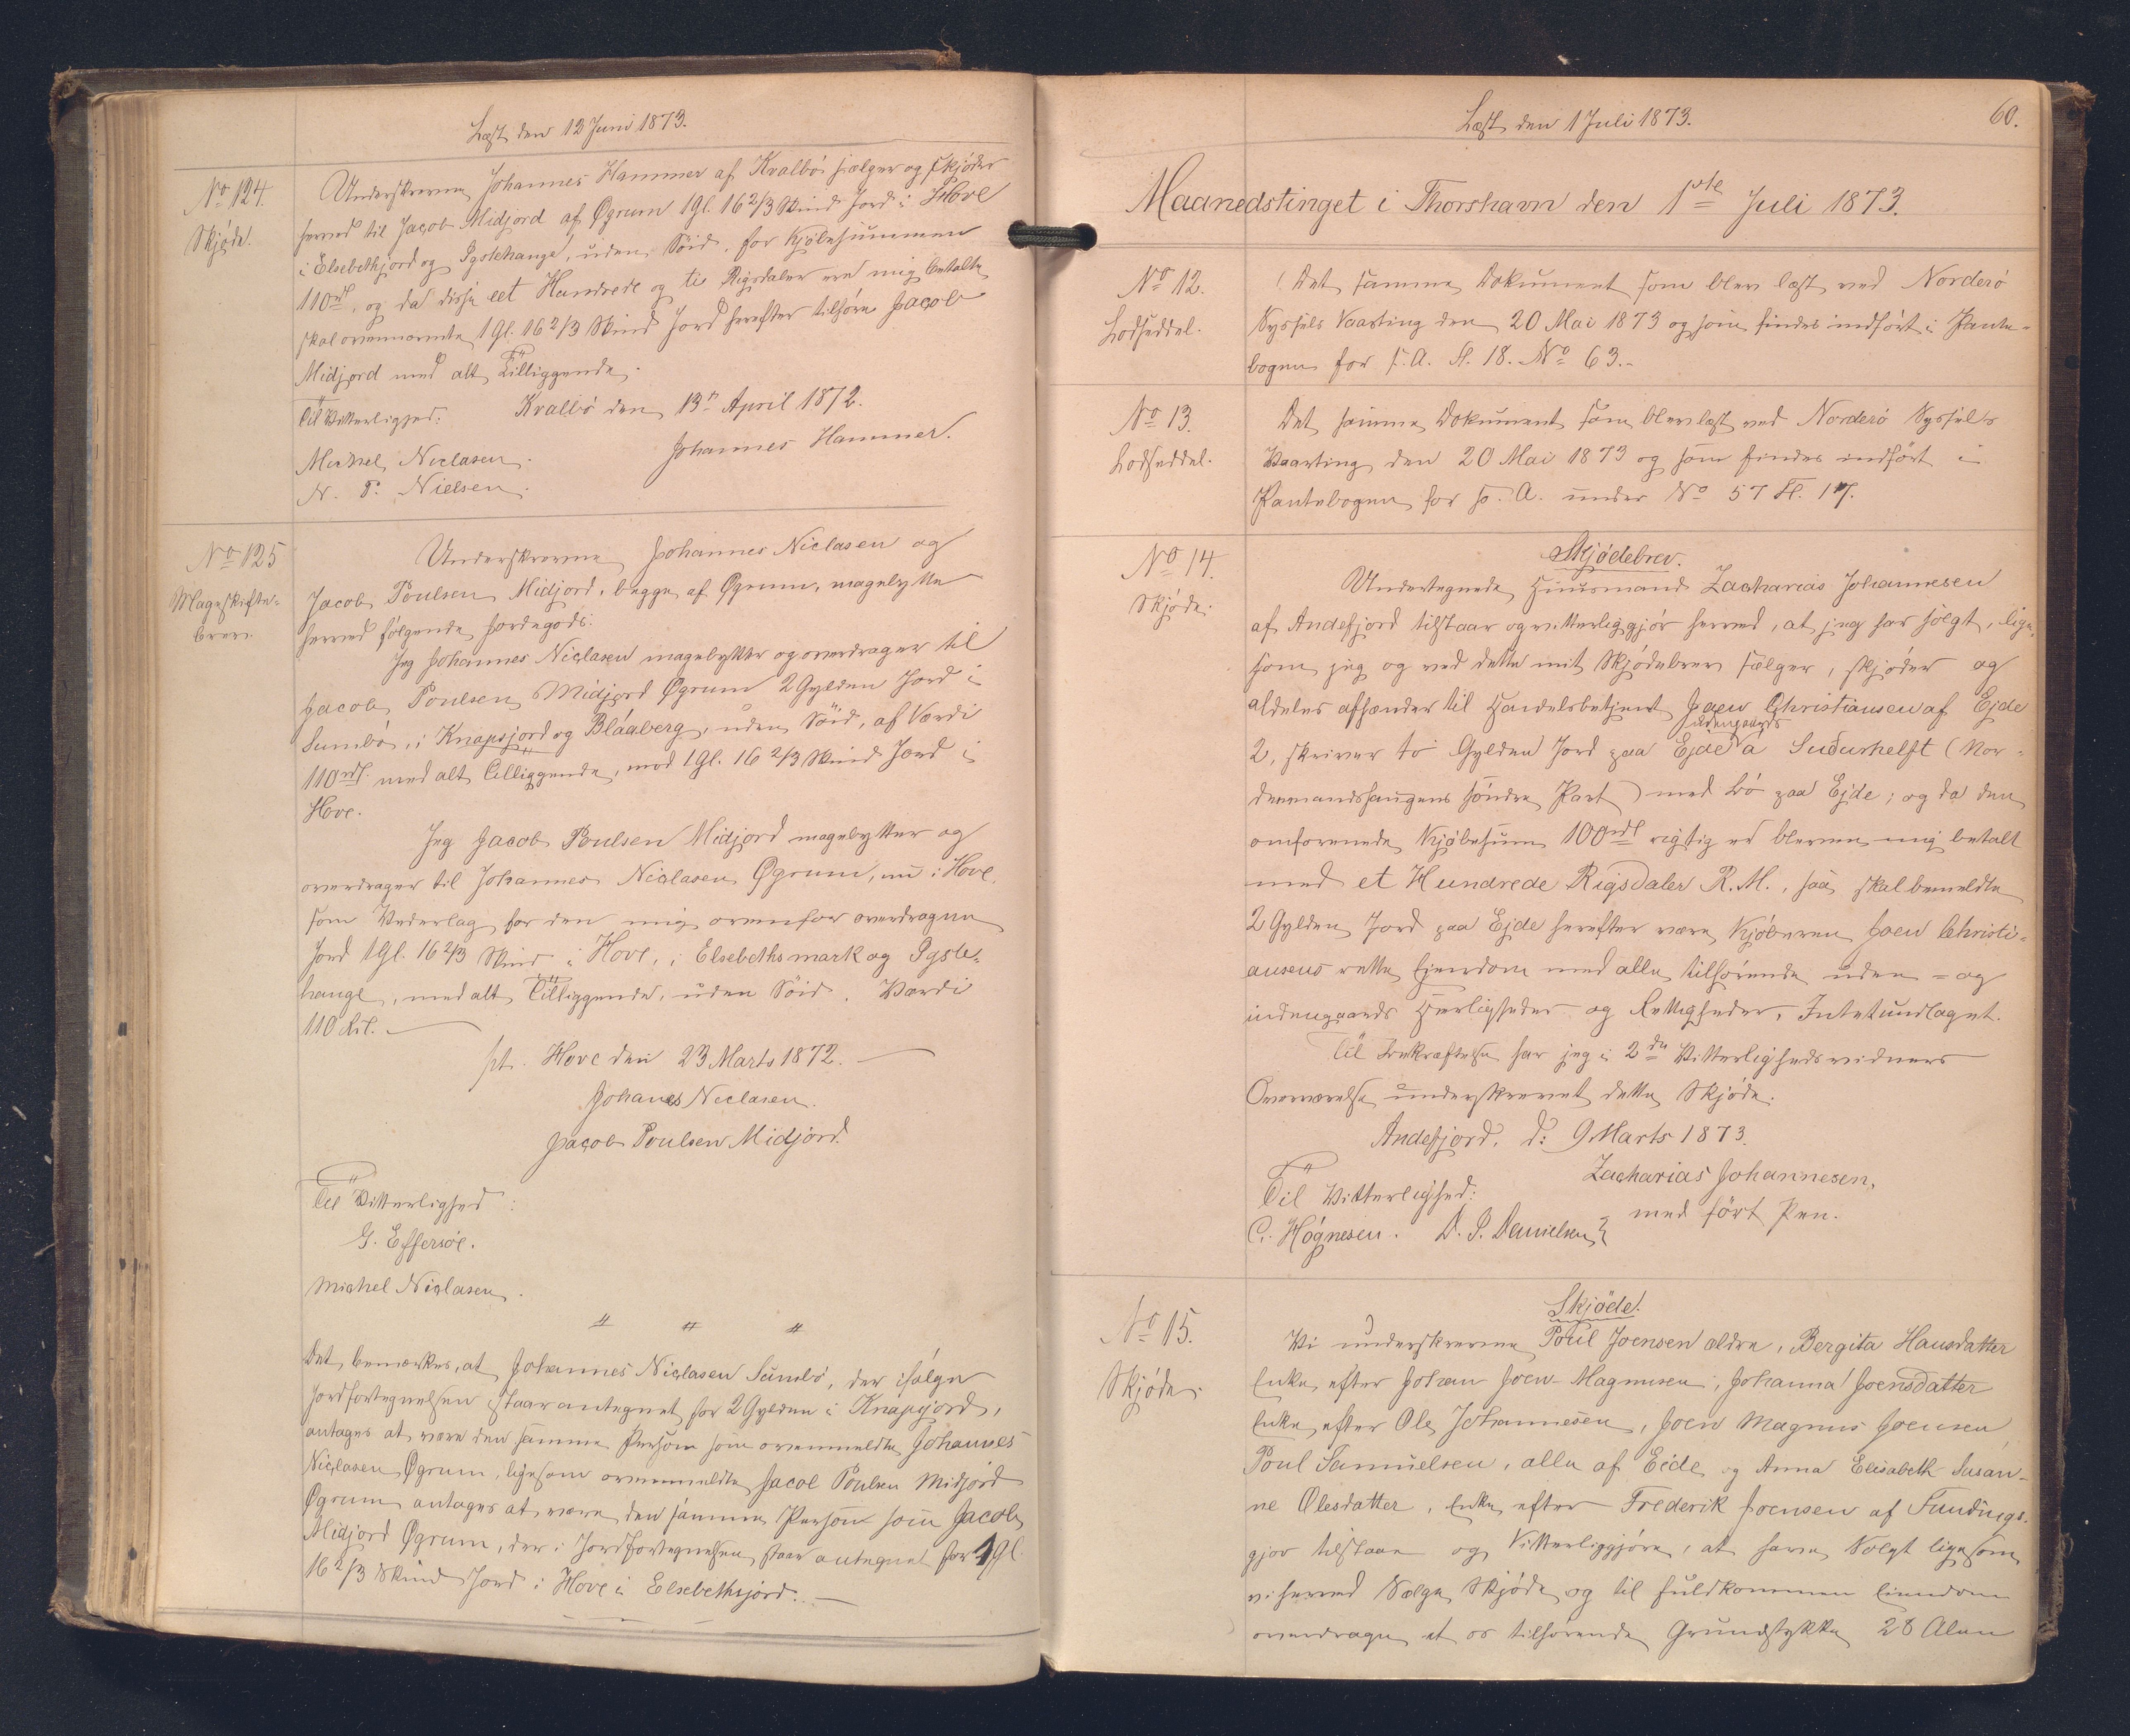 Læst den 13 Juni 1873.
No 124.
Skjøde.
Underskrevne Johannes Hammer af Kvalbö sælger og skjøder
herved til Jacob Midjord af Øgrum 1 Gl. 16 2/3 Skind Jord i Hove
i Elsebethjord og Igstehauge, uden Söid, for Kjöbesummen
110 rdl, og da disse eet Hundrede og ti Rigsdaler ere mig betalte,
skal ovennævnte 1 Gl. 16 2/3 Skind Jord herefter tilhøre Jacob
Midjord med alt Tilliggende.
Kvalbö den 13de April 1872.
Til Vitterlighed:
Johannes Hammer.
Michel Niclasen.
N. P. Nielsen.
No 125
Mageskifte-
brev.
Underskrevne Johannes Niclasen og
Jacob Poulsen Midjord, begge af Øgrum, magebytte
herved følgende Jordegods:
Jeg Johannes Niclasen magebytter og overdrager til
Jacob Poulsen Midjord Øgrum 2 Gylden Jord i
Sumbö, i Knapsjord og Bláaberg, uden Söid, af Værdi
110 rdl. med alt Tilliggende, mod 1 Gl. 16 2/3 Skind Jord i
Hove.
Jeg Jacob Poulsen Midjord magebytter og
overdrager til Johannes Niclasen Øgrum, nu i Hove,
som Vederlag for den mig ovenfor overdragne
Jord 1 Gl. 16 2/3 Skind i Hove, i Elsebethsmark og Igste-
hauge, med alt Tilliggende, uden Söid. Værdi
110 Rd.
pt. Hove den 23 Marts 1872.
Johanes Neclasen.
Jacob Poulsen Midjord.
Til Vitterlighed:
G. Effersöe.
Michel Niclasen.
Det bemærkes, at Johannes Niclasen Sumbö, der ifølge
Jordfortegnelsen staar antegnet for 2 Gylden i Knapjord,
antages at være den samme Person som ovenmeldte Johannes
Niclasen Øgrum, ligesom ovenmeldte Jacob Poulsen Midjord
Øgrum antages at være den samme Person som Jacob
Midjord Øgrum, der i Jordfortegnelsen staar antegnet for 1 Gl
16 2/3 Skind Jord i Hove i Elsebethsjord.
Læst den 1 Juli 1873.
60.
Maanedstinget i Thorshavn den 1ste Juli 1873.
No 12.
Lodseddel.
Det samme Dokument som blev læst ved Norderö
Syssels Vaarting den 20 Mai 1873 og som findes indført i Pante-
bogen for s. A. Fl. 18. No 63.
No 13.
Lodseddel.
Det samme Dokument som blev læst ved Norderö Syssels
Vaarting den 20 Mai 1873 og som findes indført i
Pantebogen for s. A. under No 57 Fl. 17.
No 14.
Skjøde.
Skjødebrev.
Undertegnede Huusmand Zacharias Johannesen
af Andefjord tilstaar og vitterliggjör herved, at jeg har solgt, lige-
som jeg og ved dette mit Skjødebrev sælger, skjøder og
aldeles afhænder til Handelsbetjent Joen Christiansen af Ejde
2, skriver to Gylden Jord paa Ejde á Sudurhelft (Nor-
denmandshaugens söndre Part) med Bö paa Ejde; og da den
omforenede Kjöbesum 100 rdl rigtig er bleven mig betalt
med et Hundrede Rigsdaler R. M., saa skal bemeldte
2 Gylden Jord paa Ejde herefter være Kjöberen Joen Christi-
ansens rette Eiendom med alle tilhørende uden- og
indengaards Herligheder og Rettigheder, Intet undtaget.
Til Bekræftelse har jeg i 2de Vitterlighedsvidners
Overværelse underskrevet dette Skjøde.
Andefjord, d: 9 Marts 1873.
Zacharias Johannesen,
med fört Pen.
Til Vitterlighed:
C. Høgnesen. D. P. Danielsen
No 15.
Skjøde.
Skjöde.
Vi underskrevne Poul Joensen ældre, Bergita Hansdatter
Enke efter Johan Joen-Magnusen, Johanna Joensdatter
Enke efter Ole Johannesen, Joen Magnus Joensen,
Poul Samuelsen, alle af Eide og Anna Elisabeth Susan-
ne Olesdatter, Enke efter Frederik Joensen af Fundings-
gjov tilstaae og Vitterliggjöre, at have Solgt ligesom
vi herved Sælge Skjöde og til fuldkommen Eiendom
overdrage et os tilhørende Grundstykke 28 Alen